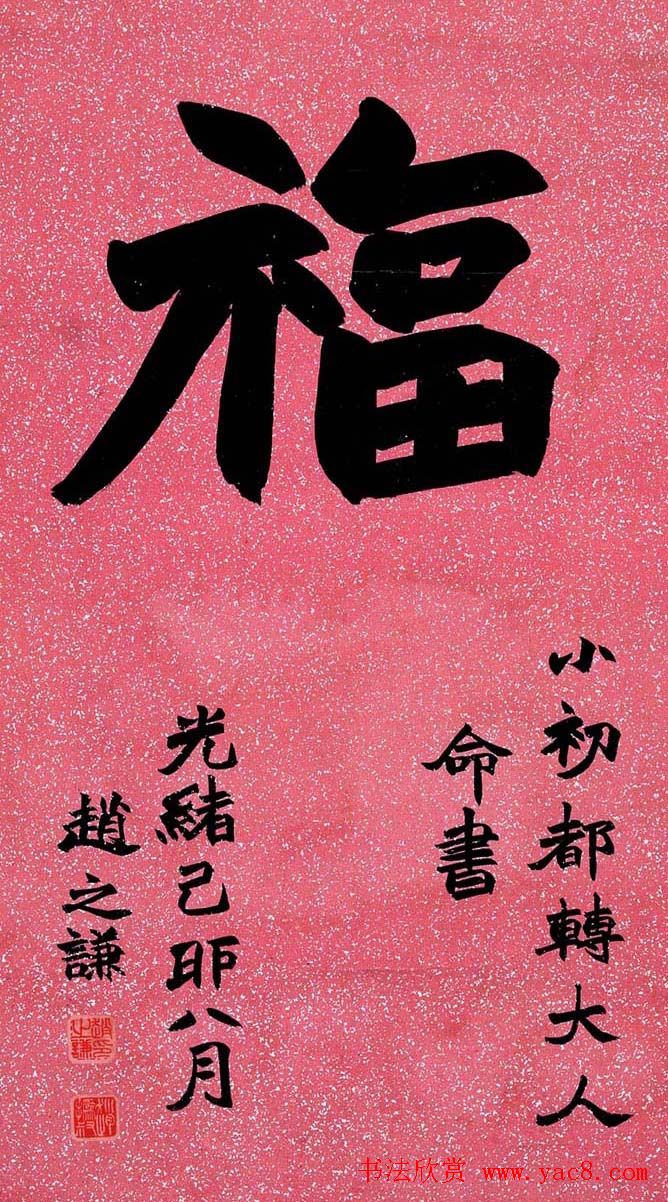 福
小初都轉大人
命書
光緒己卯八月
趙之謙
書法欣赏 www.yac8.com